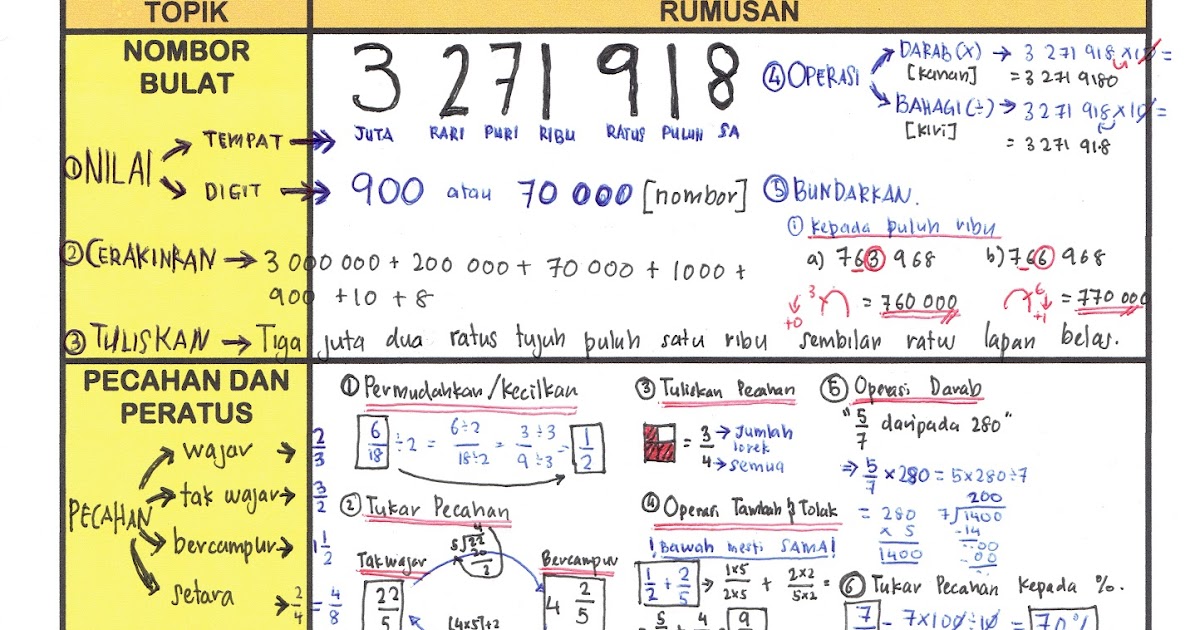 TOPIK
RUMUSAN
NOMBOR
BULAT
① NILAI
TEMPAT
DIGIT
3 271 918
JUTA RARI PURI RIBU RATUS PULUH SA
900 atau 70 000 [nombor]
② CERAKINKAN → 3 000 000 + 200 000 + 70 000 + 1000 +
900 + 10 + 8
③ TULISKAN → Tiga juta dua ratus tujuh puluh satu ribu sembilan ratus lapan belas.
④ OPERASI
DARAB (×) → 3 271 918 × 10 =
[kanan] = 3 271 9180
BAHAGI (÷) → 3 271 918 × 10 =
[kiri]
= 3 271 91.8
⑤ BUNDARKAN.
① kepada puluh ribu
a) 763 968 b) 766 968
3 +0 = 760 000
6 +1 = 770 000
PECAHAN DAN
PERATUS
PECAHAN
wajar → 2/3
tak wajar → 3/2
bercampur → 1 1/2
setara → 2/4 = 4/8
① Permudahkan/Kecilkan
6/18 ÷2 = 6÷2/18÷2 = 3÷3/9÷3 = 1/2
② Tukar Pecahan
Takwajar
Bercampur
22/5
4
5√22
20
2
4 2/5
(4×5)+2
③ Tuliskan Pecahan
= 3/4 → Jumlah
lorek
→ semua
④ Operasi Tambah & Tolak
! Bawah mesti SAMA!
1/2 + 2/5 → 1×5/2×5 + 2×2/5×2 =
5 4 9
⑤ Operasi Darab
"5/7 daripada 280"
⇒ 5/7 × 280 = 5×280÷7
= 280
× 5
1400
200
7√1400
-14
00
00
⑥ Tukar Pecahan kepada %.
7 - 7×100÷10 = 70%